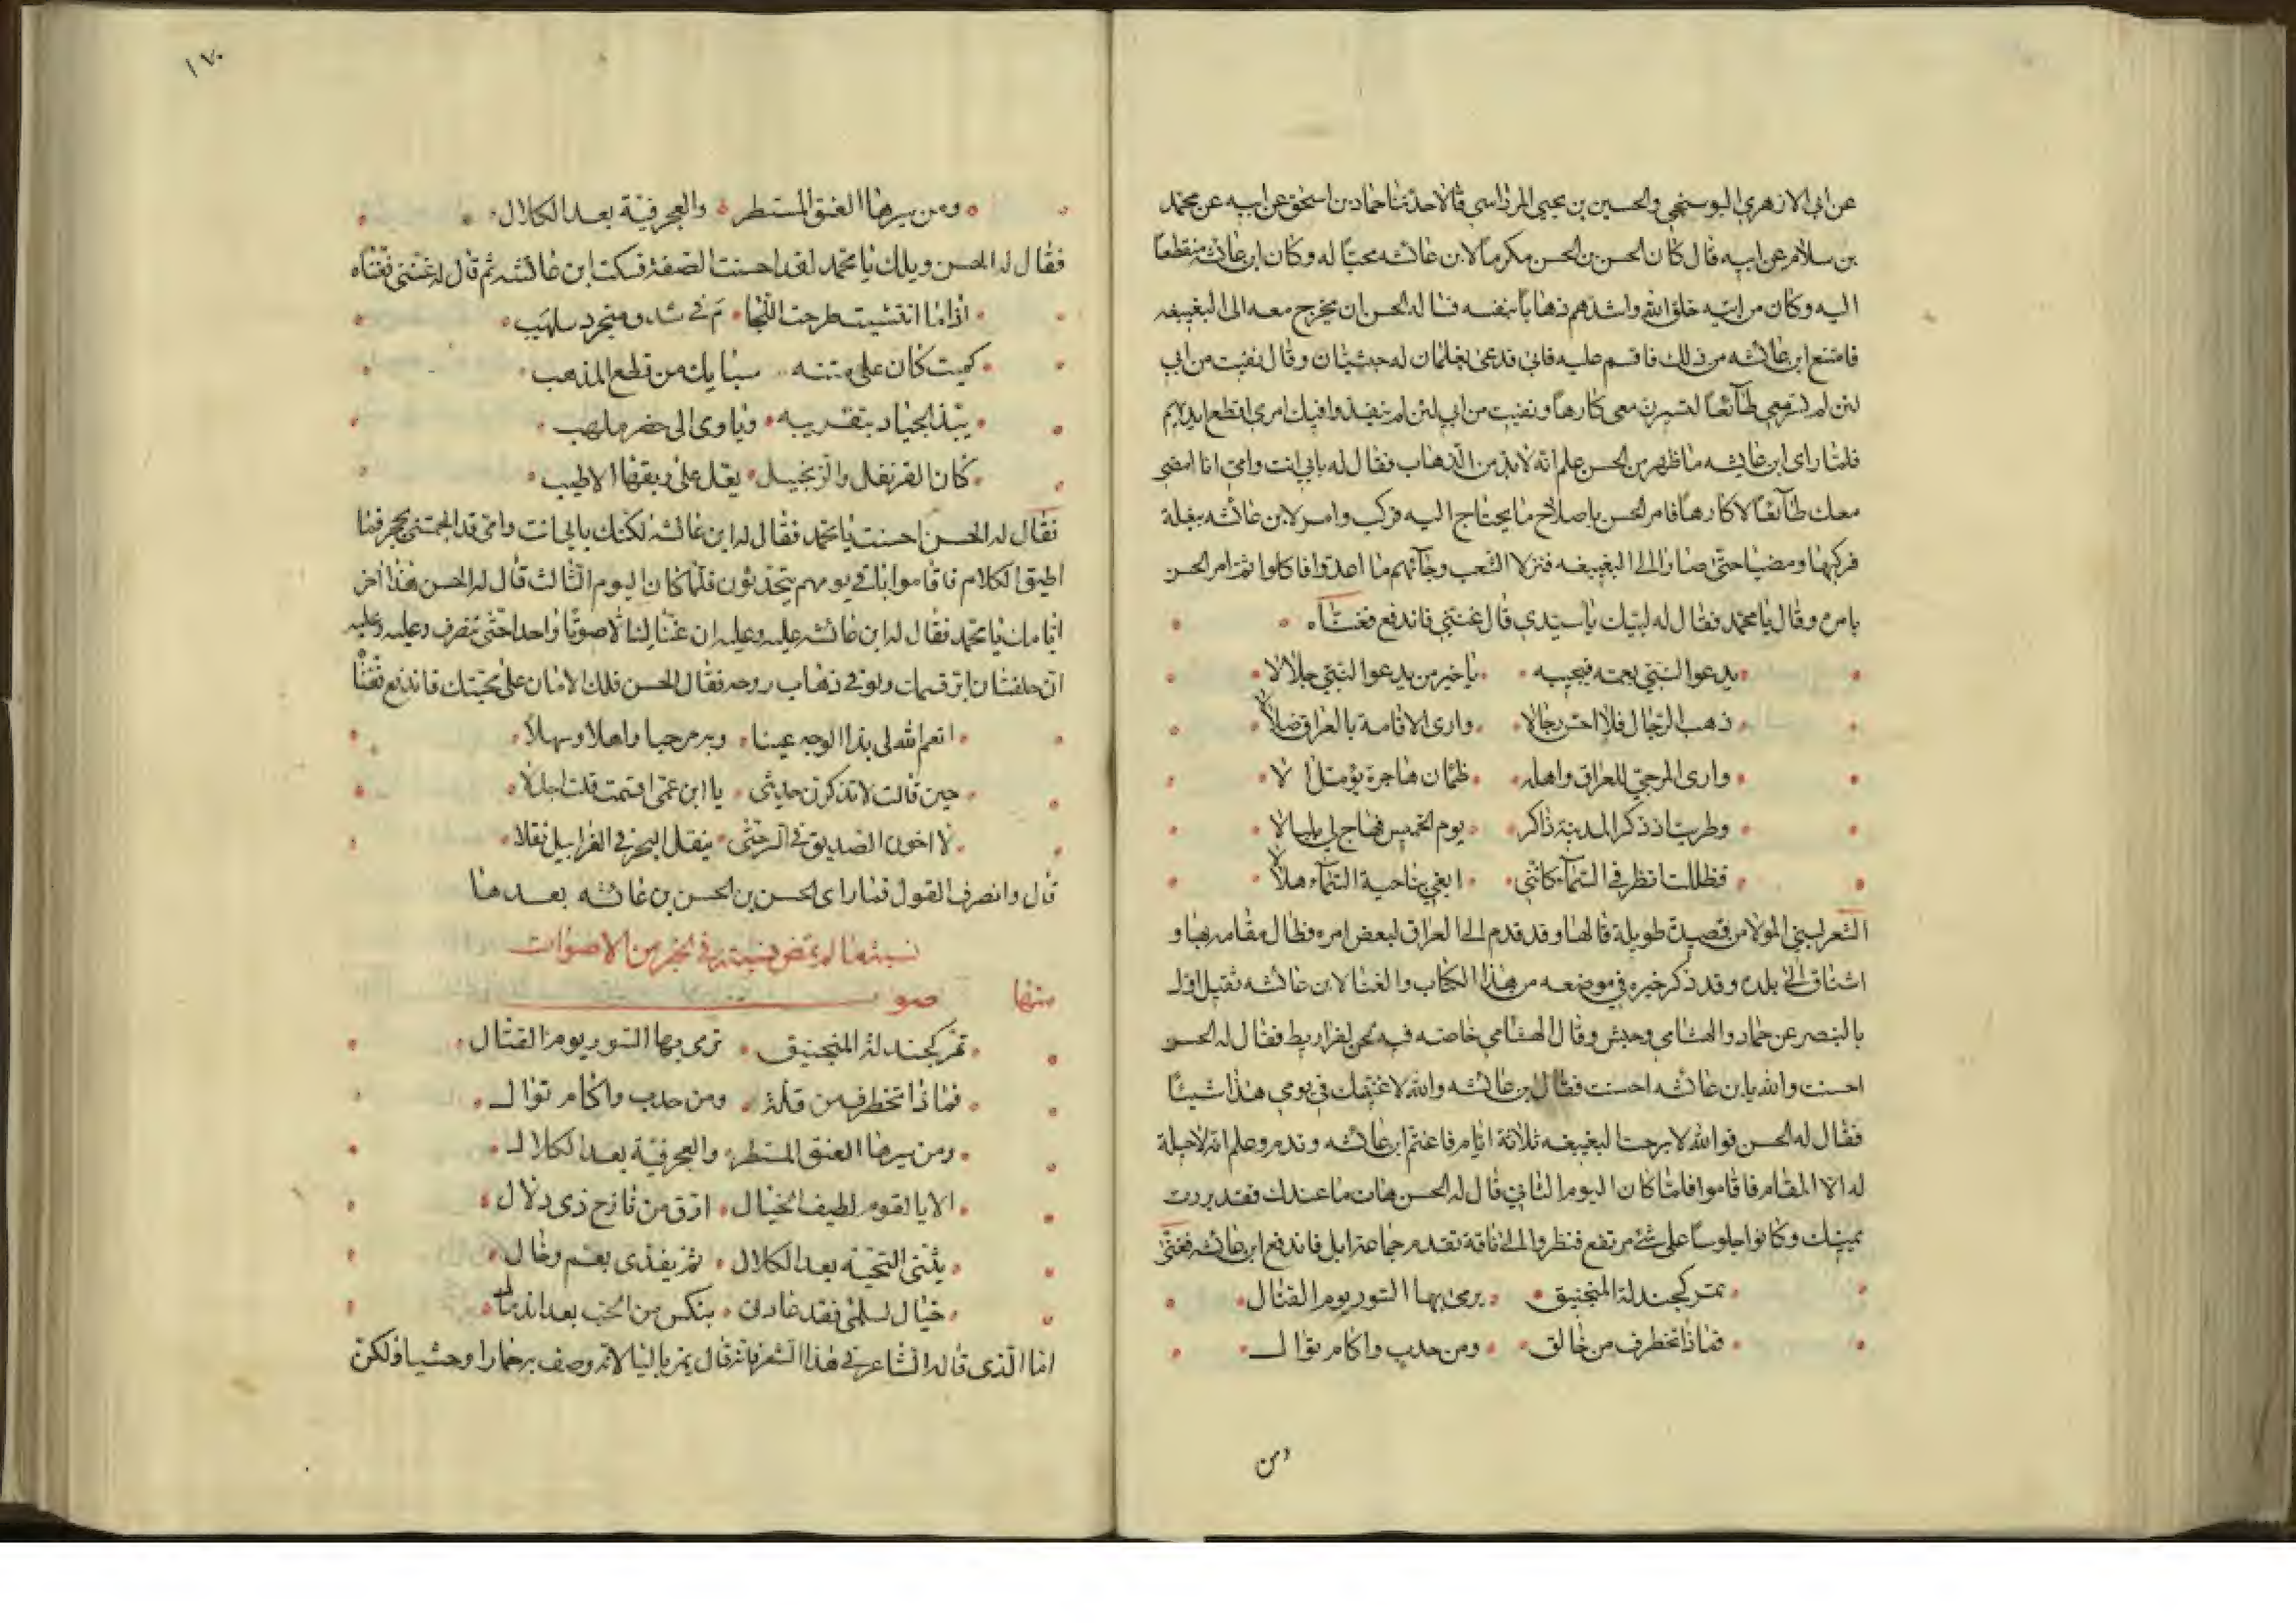 عن ابي الازهري البوسنجي والحسين بن يحيى المرداسي قالا حدثنا حماد بن اسحق عن ابيه عن محمد
بن سلام عن ابيه قال كان الحسن بن الحسن مكرما لابن عائشه محبا له وكان ابن عائشه منقطعا
اليه وكان من اتيه خلق الله واشدهم ذهابا بنفسه فساله الحسن ان يخرج معه الى البغيبغه
فامتنع ابن عائشه من ذلك فاقسم عليه فابى فدعى بغلمان له حبشيان وقال نفيت من ابي
لئن لم تسر معي طائعا لتسيرن معي كارها ونفيت من ابي لئن لم ينفذوا فيك امري لاقطعن ايديهم
فلما راى ابن عائشه ما ظهر من الحسن علم انه لا بد من الذهاب فقال له بابي انت وامي انا امضي
معك طائعا لا كارها فامر الحسن باصلاح ما يحتاج اليه فركب وامر لابن عائشه ببغلة
فركبها ومضيا حتى صارا الى البغيبغه فنزلا الشعب وجآئهم ما اعدوا فاكلوا ثم امر الحسن
بامره وقال يا محمد فقال له لبيك يا سيدي قال غنني فاندفع فغنآه
يدعوا النبي بعمه فيجيبه يا خير من يدعوا النبي جلالا
ذهب الرجال فلا احس رجالا وارى الاقامة بالعراق ضلالا
وارى المرجي للعراق واهله ظمان هاجرة يؤمل الا
وطربت اذ ذكر المدينة ذاكر يوم الخميس فهاج لي بلبالا
فظللت انظر في السمآء كانني ابغي بناحية السمآء هلالا
الشعر لبني المولا من قصيدة طويلة قالها وقد قدم الى العراق لبعض امره فطال مقامه بها و
اشتاق الى بلده وقد ذكر خبره في موضعه من هذا الكتاب والغنا لابن عائشه ثقيل اول
بالبنصر عن حماد والهشامي وحبش وقال الهشامي خاصة فيه لحن لقراريط فقال له الحسن
احسنت والله يابن عائشه احسنت فقال ابن عائشه والله لا غنيتك في يومي هذا شيئا
فقال له الحسن فوالله لا برحت البغيبغه ثلاثة ايام فاغتم ابن عائشه وندم وعلم انه لا حيلة
له الا المقام فاقاموا فلما كان اليوم الثاني قال له الحسن هات ما عندك فقد بررت
يمينك وكانوا جلوسا على شئ مرتفع فنظروا الى ناقة تقدم جماعة ابل فاندفع ابن عائشه فغنى
تمر كجندلة المنجنيق يرمى بها السور يوم القتال
فماذا تخطرف من خالق ومن حدب واكام توال
ومن
١٧٠
ومن سيرها العنق المسبطر والعجرفية بعد الكلال
فقال له الحسن ويلك يا محمد لقد احسنت الصفة فسكت ابن عائشه ثم قال له غنني فغناه
اذا ما انتشيت طرحت اللجا م في شدو منجرد سلهب
كميت كان على متنه سبايك من قطع المذهب
يبذ الجياد بتقريبه وياوى الى حضر ملهب
كان القرنفل والزنجبيل يعل على ريقها الاطيب
فقال له الحسن احسنت يا محمد فقال له ابن عائشه لكنك بابي انت وامي قد الجمتني بحجر فما
اطيق الكلام فاقاموا باقي يومهم يتحدثون فلما كان اليوم الثالث قال له الحسن هذا اخر
ايامك يا محمد فقال له ابن عائشه عليه وعليه ان غنا لينا الا صوتا واحدا حتى ننصرف وعليه وعليه
ان حلفت ان ابر قسمك ولو في ذهاب روحه فقال الحسن فلك الامان على محبتك فاندفع فغنا
انعم الله لي بذا الوجه عينا وبه مرحبا واهلا وسهلا
حين قالت لا تذكرن حديثي يا ابن عمي اقسمت قلت اجلا
لا اخون الصديق في السر حتى ينقل البحر في الغرابيل نقلا
قال وانصرف القول فما راى الحسن بن الحسن بن عائشه بعد هذا
نسبة ما لم تمض نسبته في الخبر من الاصوات
منها صو
تمر كجندلة المنجنيق ترمى بها السور يوم القتال
فماذا تخطرف من قلة ومن حدب واكام توال
ومن سيرها العنق المسبطر والعجرفية بعد الكلال
الا يا لقوم لطيف الخيال ارق من نازح ذى دلال
يثنى التحية بعد الكلال ثم يفدى بعم وخال
خيال لسلمى فقد عادلى بنكس من الحب بعد اندمال
اما الذى قاله الشاعر في هذا الشعر فانه قال يمر باليا لانه وصف به حمارا وحشيا ولكن